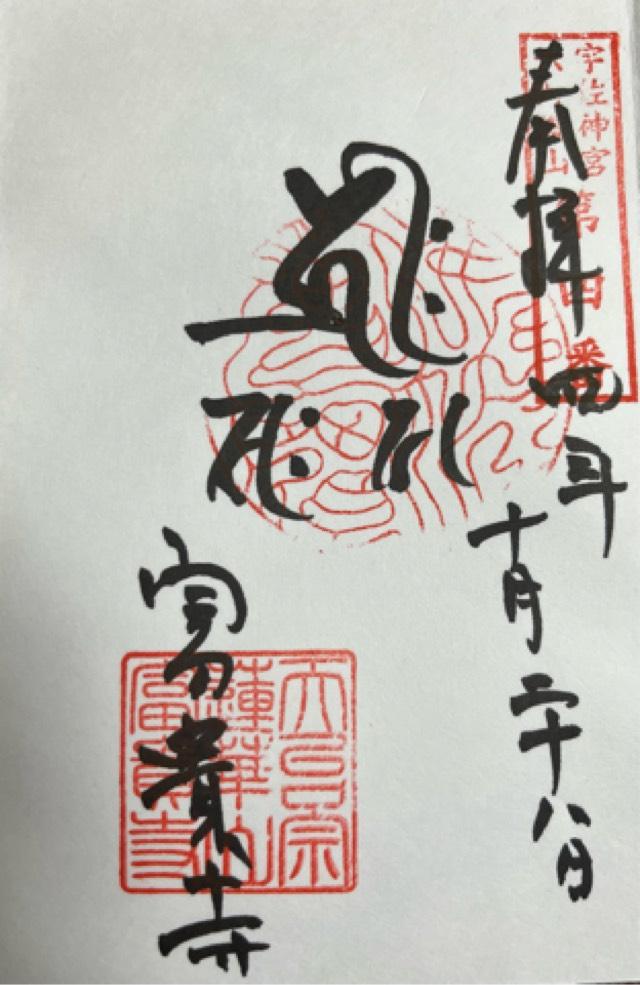 奉拝
四年
十月二十八日
宇佐神宮
六郷山
第四番
富貴寺
天台宗
蓮華山
富貴寺